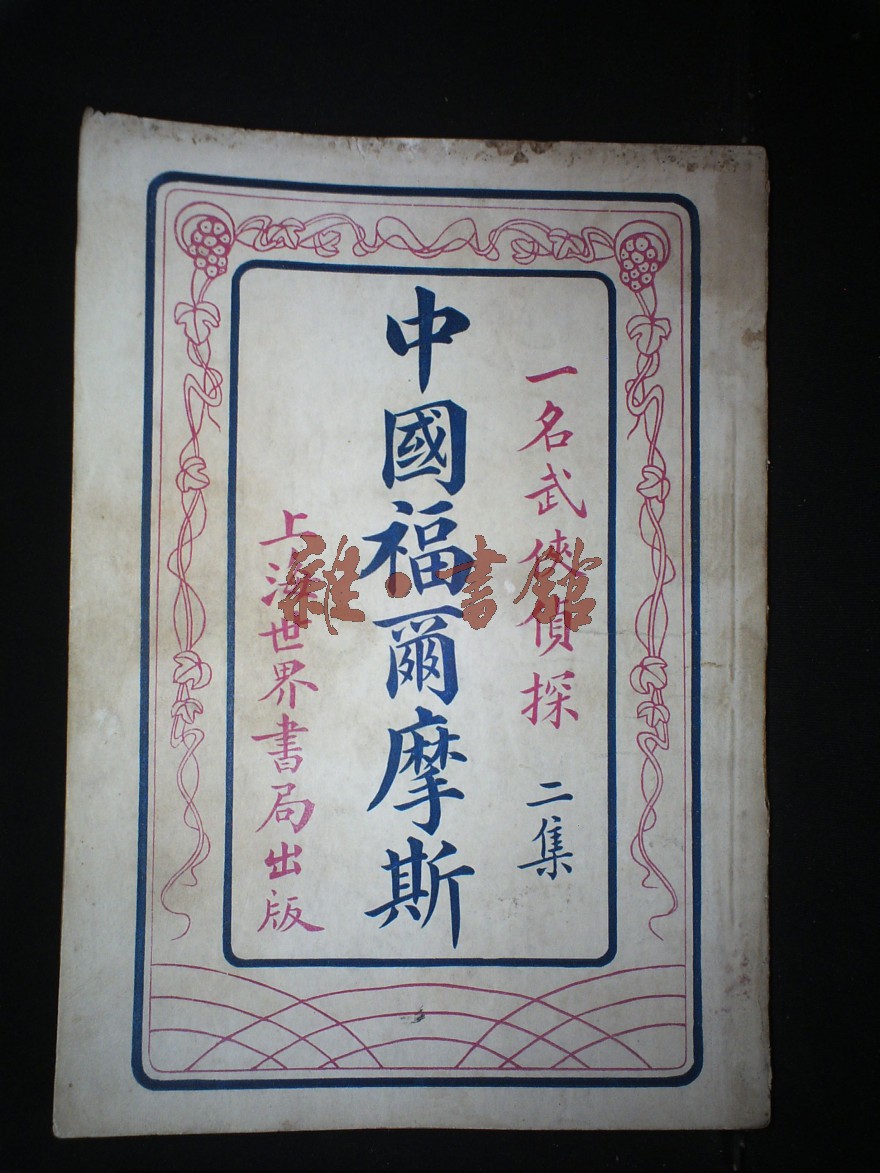 一名武俠偵探 二集
中國福爾摩斯
上海世界書局出版
雜·書館